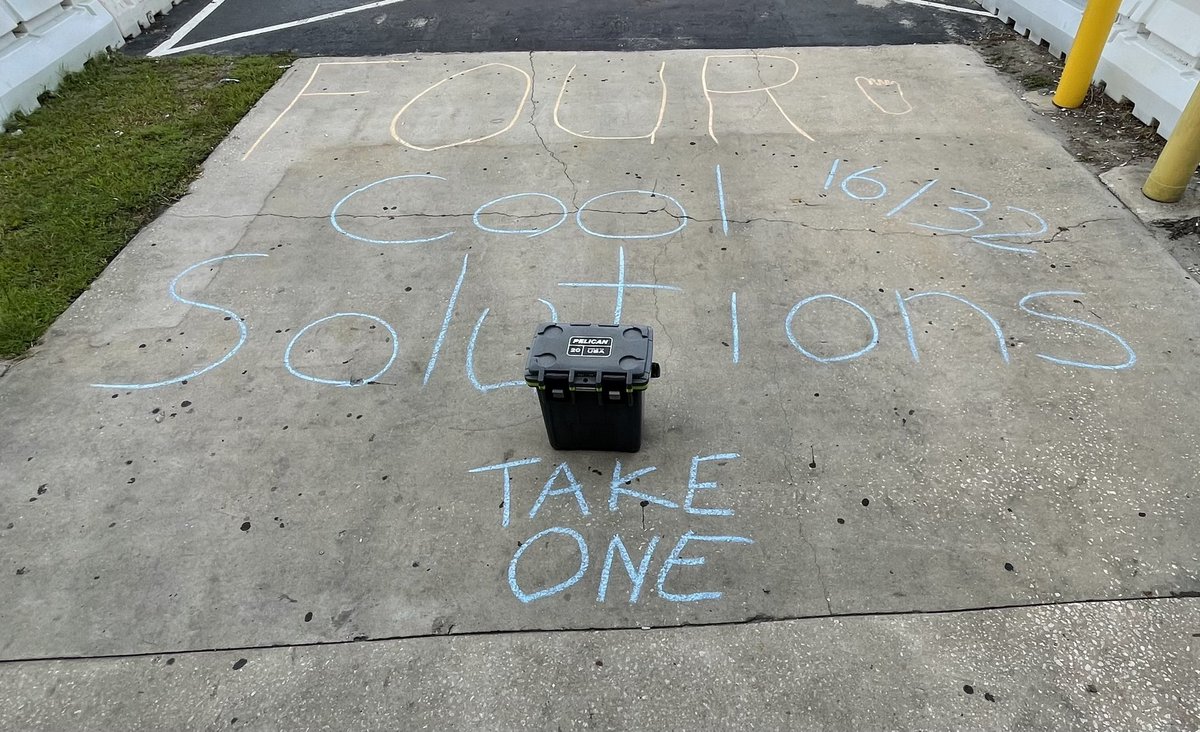 FOUR
Cool 16/32
Solutions
PELICAN
20
TAKE
ONE